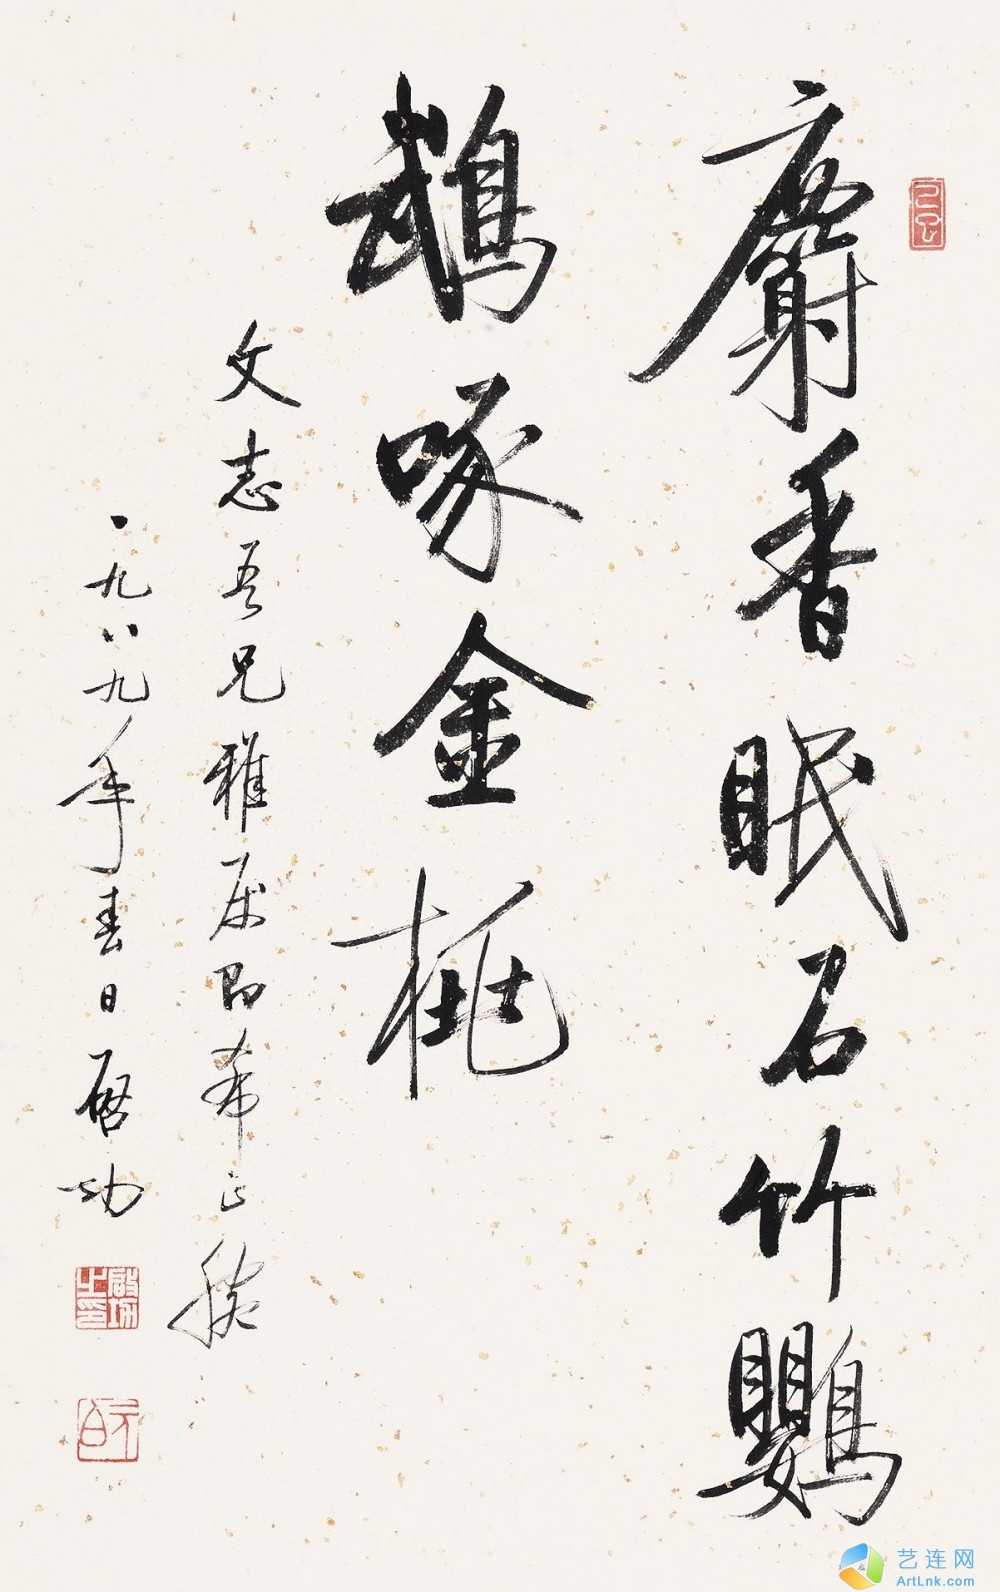 麝香眠石竹鸚
鵡啄金桃
文志吾兄雅属即希正腕
一九八九年春日啓功
啟功之印
元白
艺连网
ArtLnk.com